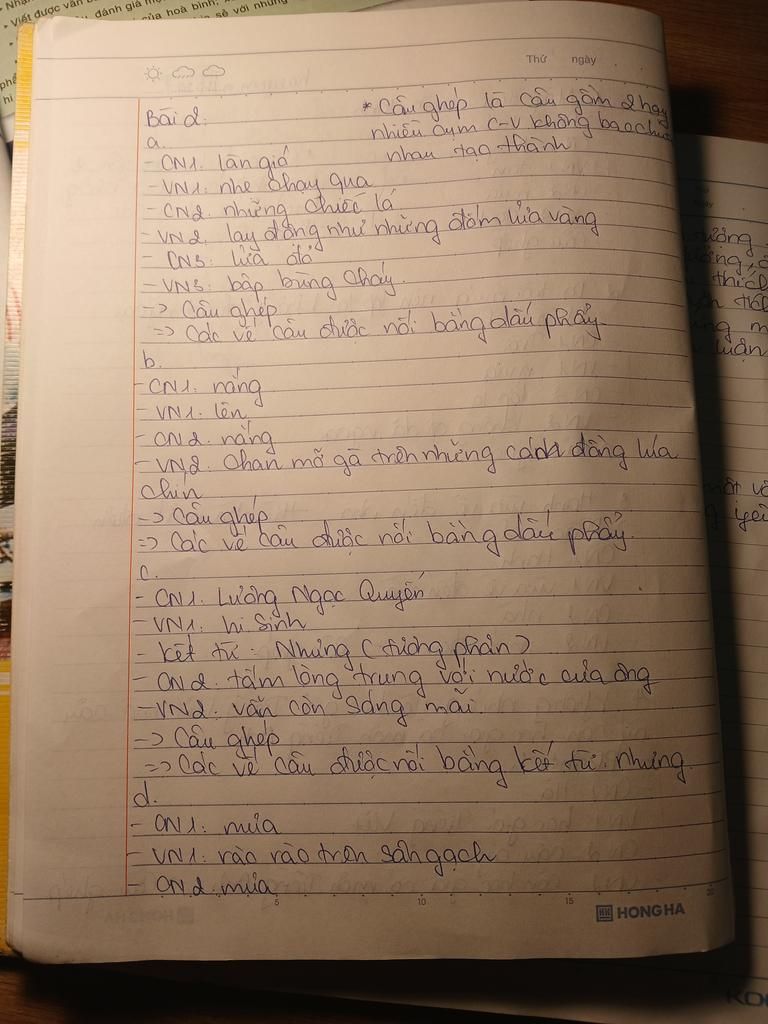 Viết được văn
đánh giá
của hoà bình;
sẻ với những
Thứ ngày
Bài 2:
* Câu ghép là câu gồm 2 hay
nhiều cụm C-V không bao chứa
nhau tạo thành
a.
- CN1: làn gió
- VN1: nhẹ chạy qua
- CN2: những chiếc lá
- VN2: lay động như những đốm lửa vàng
- CN3: lửa đỏ
- VN3: bập bùng cháy.
-> Câu ghép
=> Các vế câu được nối bằng dấu phẩy
b.
- CN1: nắng
- VN1: lên
- CN2: nắng
- VN2: Chan mỡ gà trên những cánh đồng lúa
chín
-> Câu ghép
=> Các vế câu được nối bằng dấu phẩy.
c.
- CN1: Lương Ngọc Quyến
- VN1: hi sinh
- Kết từ: Nhưng (tương phản)
- CN2: tấm lòng trung với nước của ông
- VN2: vẫn còn sáng mãi.
-> Câu ghép
=> Các vế câu được nối bằng kết từ nhưng
d.
- CN1: mưa
- VN1: rào rào trên sân gạch
- CN2: mưa
5 10 15 20
HH HONG HA